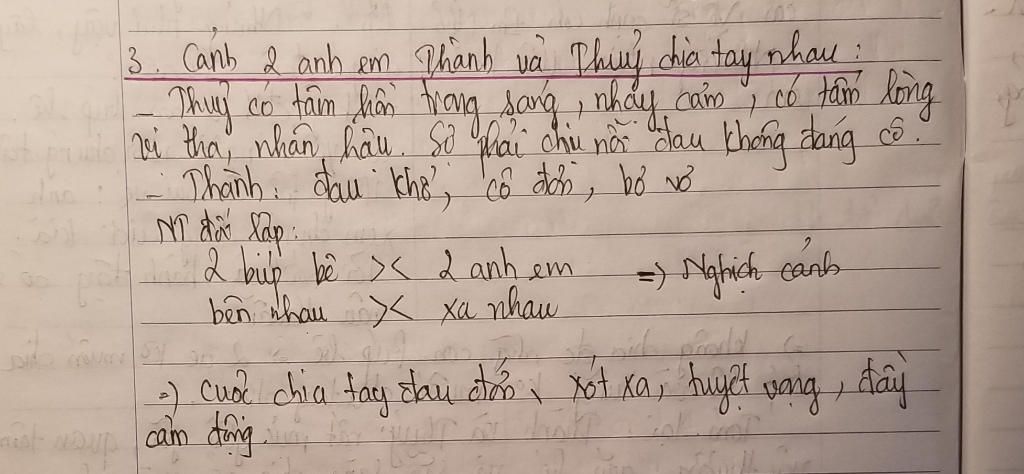 3. Cảnh 2 anh em Thành và Thuỷ chia tay nhau:
- Thuỷ có tâm hồn trong sáng, nhạy cảm, có tấm lòng
vị tha, nhân hậu. Sớ phải chịu nỗi đau không đáng có.
- Thành: đau khổ, cô đơn, bơ vơ
NT đối lập:
2 búp bê >< 2 anh em => Nghịch cảnh
bên nhau >< xa nhau
=> Cuộc chia tay đau đớn, xót xa, tuyệt vọng, đầy
cảm động.